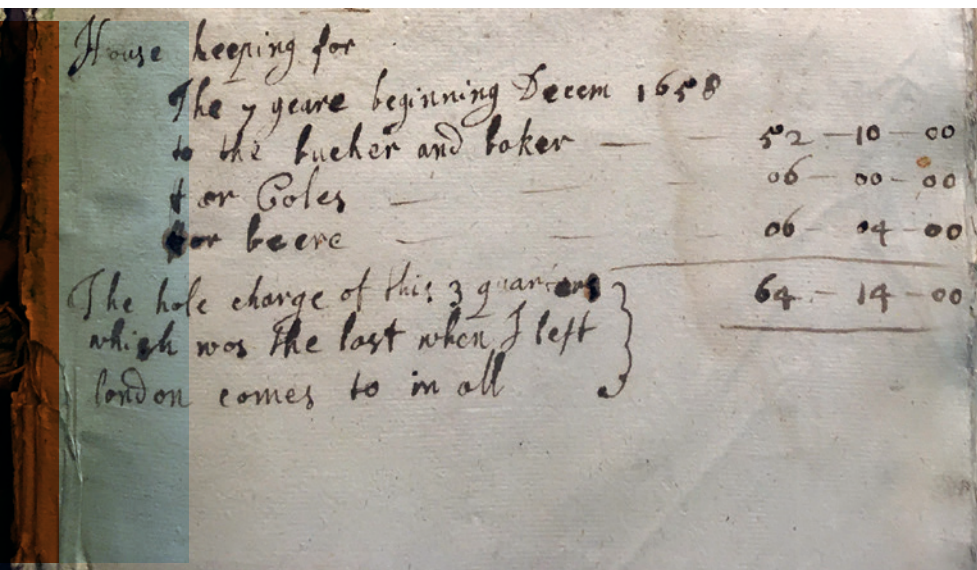 House keeping for
The 7 yeare beginning Decem 1658
to the bucher and baker — — 52 — 10 — 00
for Coles — — — 06 — 00 — 00
for beere — — — 06 — 04 — 00
The hole charge of this 3 quarters 64 — 14 — 00
which was the last when I left
london comes to in all